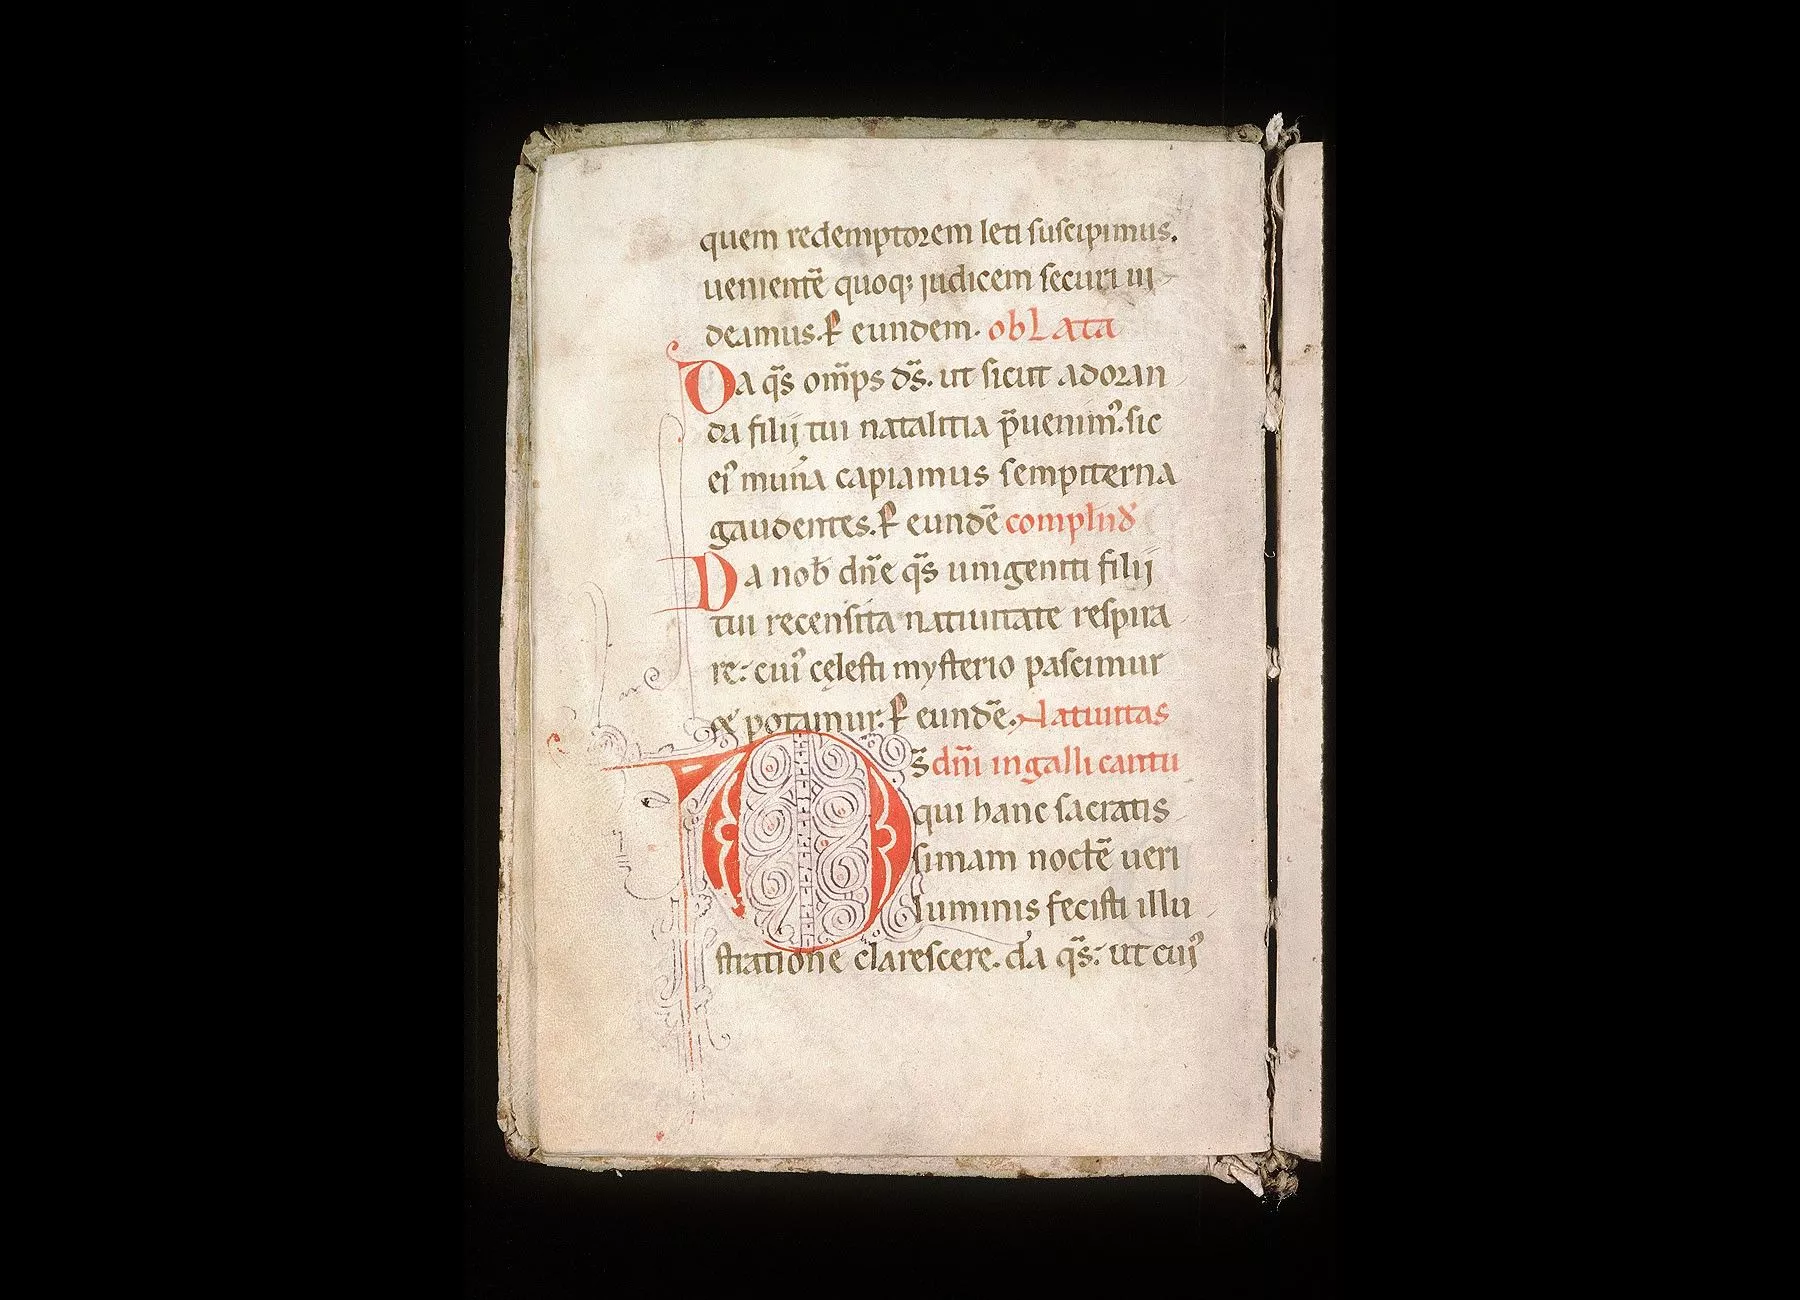 quem redemptorem leti suscipimus.
uenientē quoq; iudicem securi ui
deamus. P̄ eundem. obLata
Da q̄s om̄ps d̄s. ut sicut adoran
da filij tui natalitia p̄uenim᾿. sic
ei᾿ mun̄a capiamus sempiterna
gaudentes. P̄ eundē complnd̄
Da nob̄ dn̄e q̄s unigeniti filij
tui recensita natiuitate respira
re: cui᾿ cęlesti mysterio pascimur
& potamur. P̄ eundē. Natiuitas
Ds̄ dn̄i in galli cantu
qui hanc sacratis
simam noctē ueri
luminis fecisti illu
stratione clarescere. da q̄s: ut cui᾿